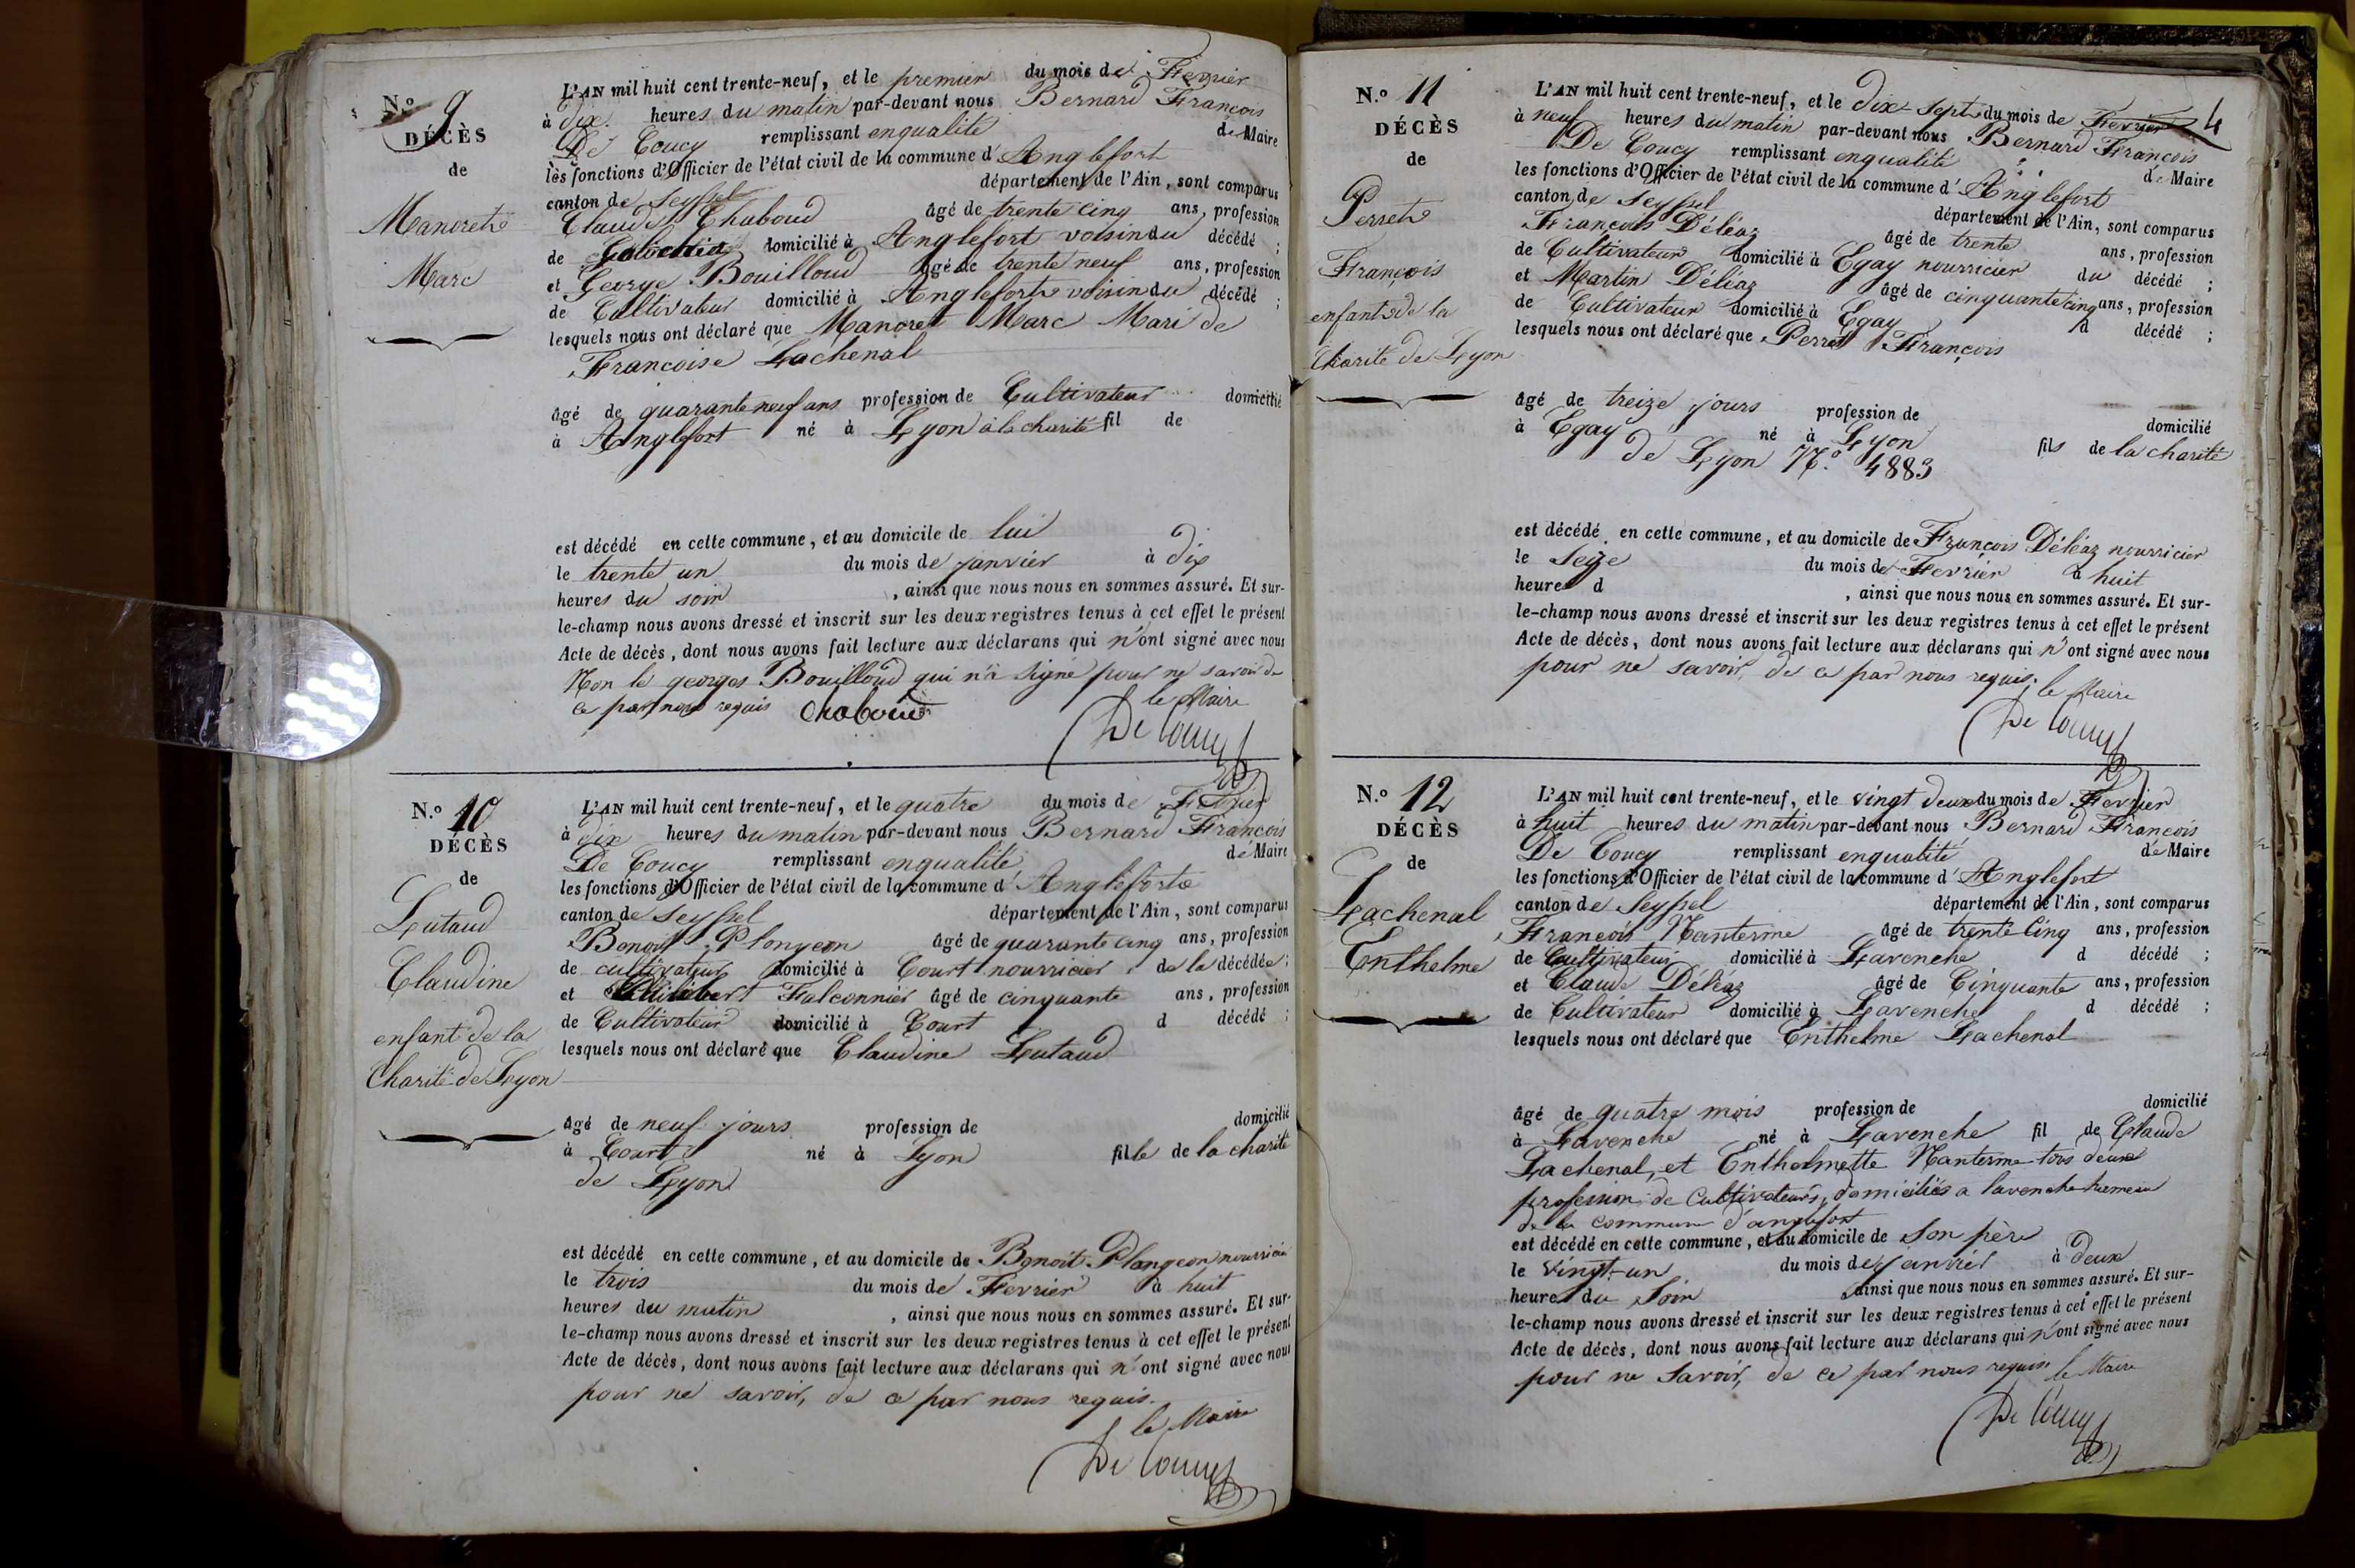 N.º 9
DÉCÈS
de
Manoret
Marc
L'AN mil huit cent trente-neuf, et le premier du mois de Fevrier
à dix heures du matin par-devant nous Bernard François
De Coucy remplissant en qualité de Maire
les fonctions d'Officier de l'état civil de la commune d'Anglefort
canton de Seyssel département de l'Ain, sont comparus
Claude Chaboud âgé de trente cinq ans, profession
de domicilié à Anglefort voisin du décédé ;
et George Bouilloud âgé de trente neuf ans, profession
de Cultivateur domicilié à Anglefort voisin du décédé ;
lesquels nous ont déclaré que Manoret Marc Mari de
Francoise Lachenal
âgé de quarante neuf ans profession de Cultivateur domicilié
à Anglefort né à Lyon à la charité fil de
est décédé en cette commune, et au domicile de lui
le trente un du mois de janvier à dix
heures du soir, ainsi que nous nous en sommes assuré. Et sur-
le-champ nous avons dressé et inscrit sur les deux registres tenus à cet effet le présent
Acte de décès, dont nous avons fait lecture aux déclarans qui n'ont signé avec nous
Non le georges Bouilloud qui n'a signé pour ne savoir de
ce par nous requis Chaboud le Maire
De Coucy
N.º 10
DÉCÈS
de
Lutaud
Claudine
enfant de la
Charité de Lyon
L'AN mil huit cent trente-neuf, et le quatre du mois de Fevrier
à dix heures du matin par-devant nous Bernard François
De Coucy remplissant en qualité de Maire
les fonctions d'Officier de l'état civil de la commune d'Anglefort
canton de Seyssel département de l'Ain, sont comparus
Benoit Plongeon âgé de quarante cinq ans, profession
de cultivateur domicilié à Court nourricier de la décédée ;
et Philibert Falconnier âgé de cinquante ans, profession
de Cultivateur domicilié à Court d décédé ;
lesquels nous ont déclaré que Claudine Lutaud
âgé de neuf jours profession de domicilié
à Court né à Lyon fille de la charité
de Lyon
est décédé en cette commune, et au domicile de Benoit Plongeon nourricier
le trois du mois de Fevrier à huit
heures du matin, ainsi que nous nous en sommes assuré. Et sur-
le-champ nous avons dressé et inscrit sur les deux registres tenus à cet effet le présent
Acte de décès, dont nous avons fait lecture aux déclarans qui n'ont signé avec nous
pour ne savoir, de ce par nous requis.
le Maire
De Coucy
4
N.º 11
DÉCÈS
de
Perret
François
enfant de la
Charité de Lyon
L'AN mil huit cent trente-neuf, et le dix-sept du mois de Fevrier
à neuf heures du matin par-devant nous Bernard François
De Coucy remplissant en qualité de Maire
les fonctions d'Officier de l'état civil de la commune d'Anglefort
canton de Seyssel département de l'Ain, sont comparus
François Déléaz âgé de trente ans, profession
de Cultivateur domicilié à Egay nourricier du décédé ;
et Martin Déléaz âgé de cinquante cinq ans, profession
de Cultivateur domicilié à Egay d décédé ;
lesquels nous ont déclaré que Perret François
âgé de treize jours profession de domicilié
à Egay né à Lyon fils de la charité
de Lyon N.º 4883
est décédé en cette commune, et au domicile de François Déléaz nourricier
le Seize du mois de Fevrier à huit
heures d, ainsi que nous nous en sommes assuré. Et sur-
le-champ nous avons dressé et inscrit sur les deux registres tenus à cet effet le présent
Acte de décès, dont nous avons fait lecture aux déclarans qui n'ont signé avec nous
pour ne savoir, de ce par nous requis. le Maire
De Coucy
N.º 12
DÉCÈS
de
Lachenal
Enthelme
L'AN mil huit cent trente-neuf, et le vingt deux du mois de Fevrier
à huit heures du matin par-devant nous Bernard François
De Coucy remplissant en qualité de Maire
les fonctions d'Officier de l'état civil de la commune d'Anglefort
canton de Seyssel département de l'Ain, sont comparus
François Nanterme âgé de trente Cinq ans, profession
de Cultivateur domicilié à Lavenche d décédé ;
et Claude Déléaz âgé de Cinquante ans, profession
de Cultivateur domicilié à Lavenche d décédé ;
lesquels nous ont déclaré que Enthelme Lachenal
âgé de quatre mois profession de domicilié
à Lavenche né à Lavenche fil de Claude
Lachenal, et Enthelmette Nanterme tous deux
profession de Cultivateurs, domiciliés a lavenche hameau
de la commune d'anglefort
est décédé en cette commune, et au domicile de son père
le vingt-un du mois de janvier à deux
heures du Soir ainsi que nous nous en sommes assuré. Et sur-
le-champ nous avons dressé et inscrit sur les deux registres tenus à cet effet le présent
Acte de décès, dont nous avons fait lecture aux déclarans qui n'ont signé avec nous
pour ne savoir, de ce par nous requis. le Maire
De Coucy